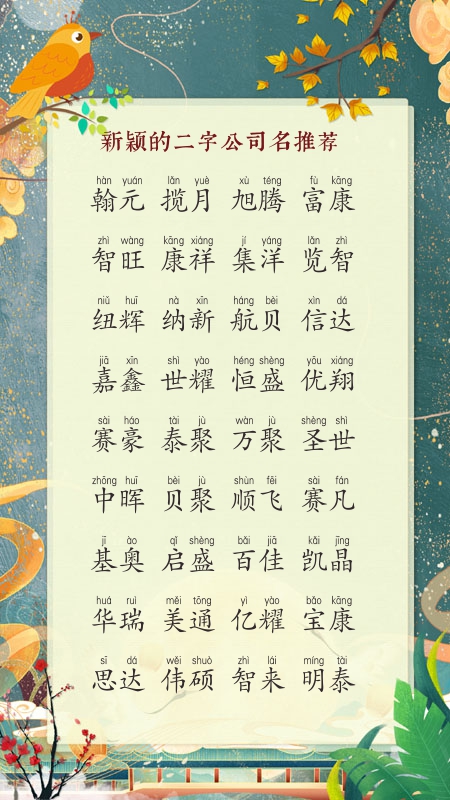 新颖的二字公司名推荐
hàn yuán lǎn yuè xù téng fù kāng
翰元 揽月 旭腾 富康
zhì wàng kāng xiáng jí yáng lǎn zhì
智旺 康祥 集洋 览智
niǔ huī nà xīn háng bèi xìn dá
纽辉 纳新 航贝 信达
jiā xīn shì yào héng shèng yōu xiáng
嘉鑫 世耀 恒盛 优翔
sài háo tài jù wàn jù shèng shì
赛豪 泰聚 万聚 圣世
zhōng huī bèi jù shùn fēi sài fán
中晖 贝聚 顺飞 赛凡
jī ào qǐ shèng bǎi jiā kǎi jīng
基奥 启盛 百佳 凯晶
huá ruì měi tōng yì yào bǎo kāng
华瑞 美通 亿耀 宝康
sī dá wěi shuò zhì lái míng tài
思达 伟硕 智来 明泰